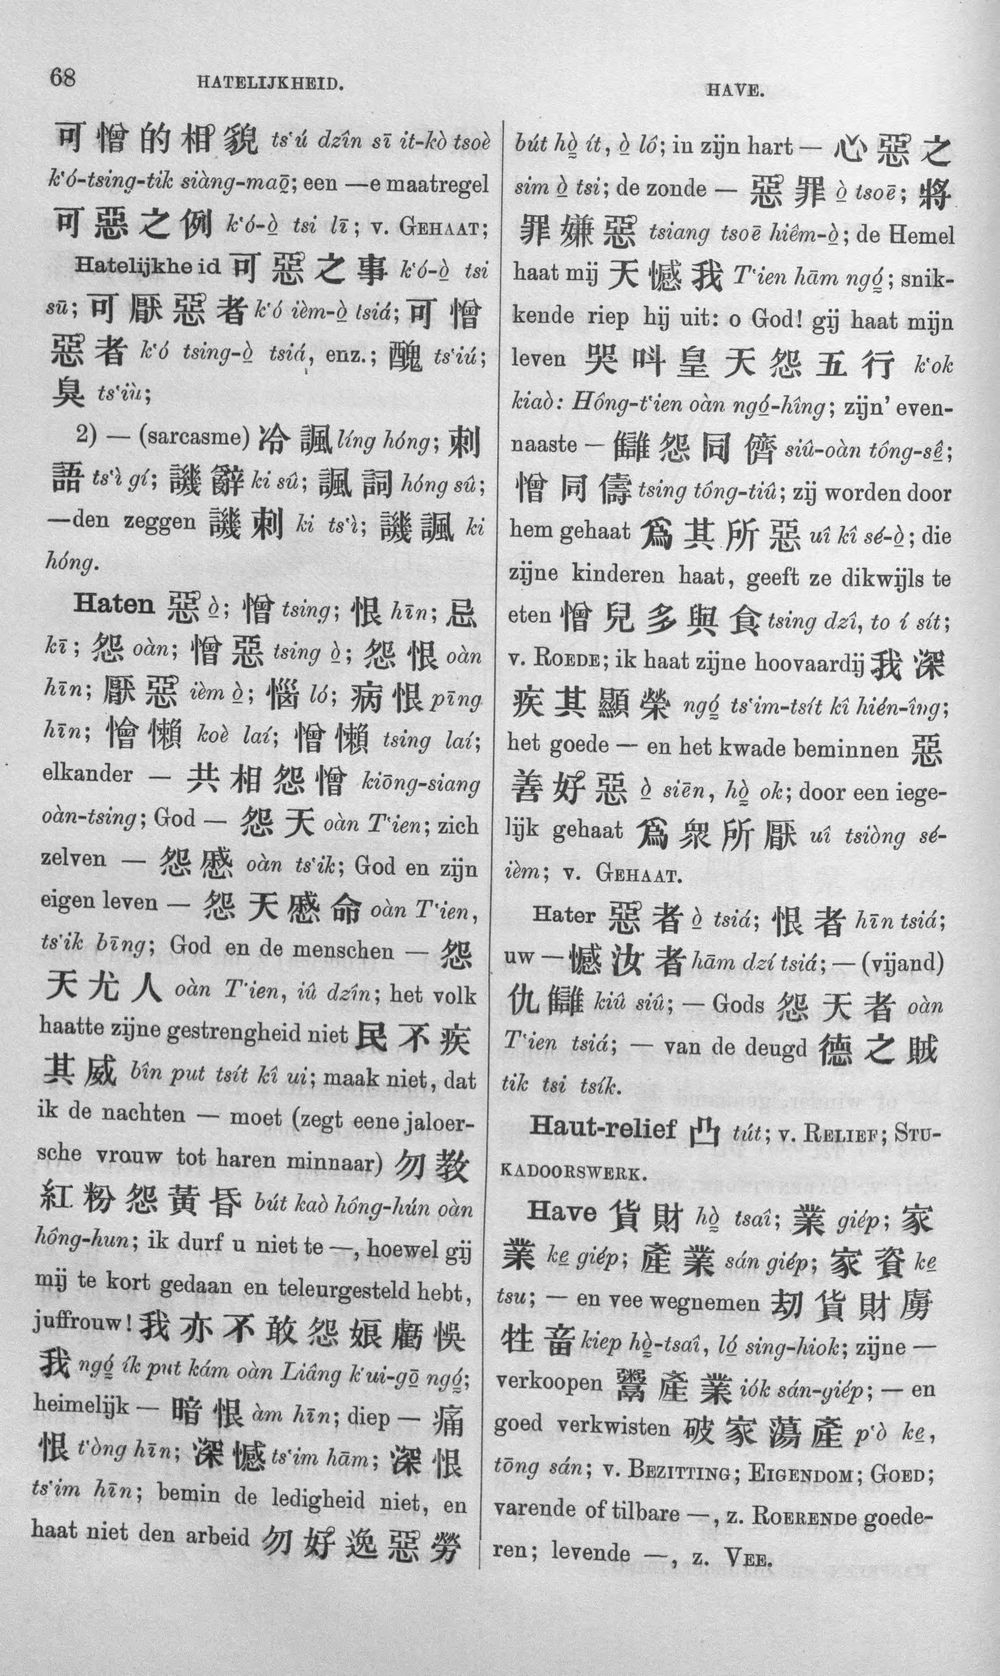 68
HATELIJKHEID.
HAVE.
可憎的相貌 ts‘ú dzîn sī it-kò tsoè
k‘ó-tsing-tik siàng-maō̤; een —e maatregel
可惡之例 k‘ó-ò̤ tsi lī; v. GEHAAT;
Hatelijkheid 可惡之事 k‘ó-ò̤ tsi
sū; 可厭惡者 k‘ó ièm-ò̤ tsiá; 可憎
惡者 k‘ó tsing-ò̤ tsiá, enz.; 醜 ts‘iú;
臭 ts‘iù;
2) — (sarcasme) 冷諷 líng hóng; 刺
語 ts‘ì gí; 譏辭 ki sû; 諷詞 hóng sû;
—den zeggen 譏刺 ki ts‘ì; 譏諷 ki
hóng.
Haten 惡 ò̤; 憎 tsing; 恨 hīn; 忌
kī; 怨 oàn; 憎惡 tsing ò̤; 怨恨 oàn
hīn; 厭惡 ièm ò̤; 惱 ló; 病恨 pīng
hīn; 憎懶 koè laí; 憎懶 tsing laí;
elkander — 共相怨憎 kiōng-siang
oàn-tsing; God — 怨天 oàn T‘ien; zich
zelven — 怨慼 oàn ts‘ik; God en zijn
eigen leven — 怨天慼命 oàn T‘ien,
ts‘ik bīng; God en de menschen — 怨
天尤人 oàn T‘ien, iû dzîn; het volk
haatte zijne gestrengheid niet 民不疾
其威 bîn put tsít kî ui; maak niet, dat
ik de nachten — moet (zegt eene jaloer-
sche vrouw tot haren minnaar) 勿教
紅粉怨黃昏 bút kaò hông-hún oàn
hông-hun; ik durf u niet te —, hoewel gij
mij te kort gedaan en teleurgesteld hebt,
juffrouw! 我亦不敢怨娘虧悞
我 ngó̤ ík put kám oàn Liâng k‘ui-gō̤ ngó̤;
heimelijk — 暗恨 àm hīn; diep — 痛
恨 t‘òng hīn; 深憾 ts‘im hām; 深恨
ts‘im hīn; bemin de ledigheid niet, en
haat niet den arbeid 勿好逸惡勞
bút hò̤ ít, ò̤ lô; in zijn hart — 心惡之
sim ò̤ tsi; de zonde — 惡罪 ò̤ tsoē; 將
罪嫌惡 tsiang tsoē hiêm-ò̤; de Hemel
haat mij 天憾我 T‘ien hām ngó̤; snik-
kende riep hij uit: o God! gij haat mijn
leven 哭叫皇天怨五行 k‘ok
kiaò: Hông-t‘ien oàn ngó̤-hîng; zijn’ even-
naaste — 讎怨同儕 siû-oàn tông-sê̤;
憎同儔 tsing tông-tiû; zij worden door
hem gehaat 爲其所惡 uî kî sé-ò̤; die
zijne kinderen haat, geeft ze dikwijls te
eten 憎兒多與食 tsing dzî, to í sít;
v. ROEDE; ik haat zijne hoovaardij 我深
疾其顯榮 ngó̤ ts‘im-tsít kî hién-îng;
het goede — en het kwade beminnen 惡
善好惡 ò̤ siēn, hò̤ ok; door een iege-
lijk gehaat 爲衆所厭 uî tsiòng sé-
ièm; v. GEHAAT.
Hater 惡者 ò̤ tsiá; 恨者 hīn tsiá;
uw — 憾汝者 hām dzí tsiá; — (vijand)
仇讎 kiû siû; — Gods 怨天者 oàn
T‘ien tsiá; — van de deugd 德之賊
tik tsi tsík.
Haut-relief 凸 tút; v. RELIEF; STU-
KADOORSWERK.
Have 貨財 hò̤ tsaî; 業 giép; 家
業 ke̤ giép; 產業 sán giép; 家資 ke̤
tsu; — en vee wegnemen 劫貨財虜
牲畜 kiep hò̤-tsaî, ló̤ sing-hiok; zijne —
verkoopen 鬻產業 iók sán-giép; — en
goed verkwisten 破家蕩產 p‘ò ke̤,
tōng sán; v. BEZITTING; EIGENDOM; GOED;
varende of tilbare —, z. ROERENDE goede-
ren; levende —, z. VEE.